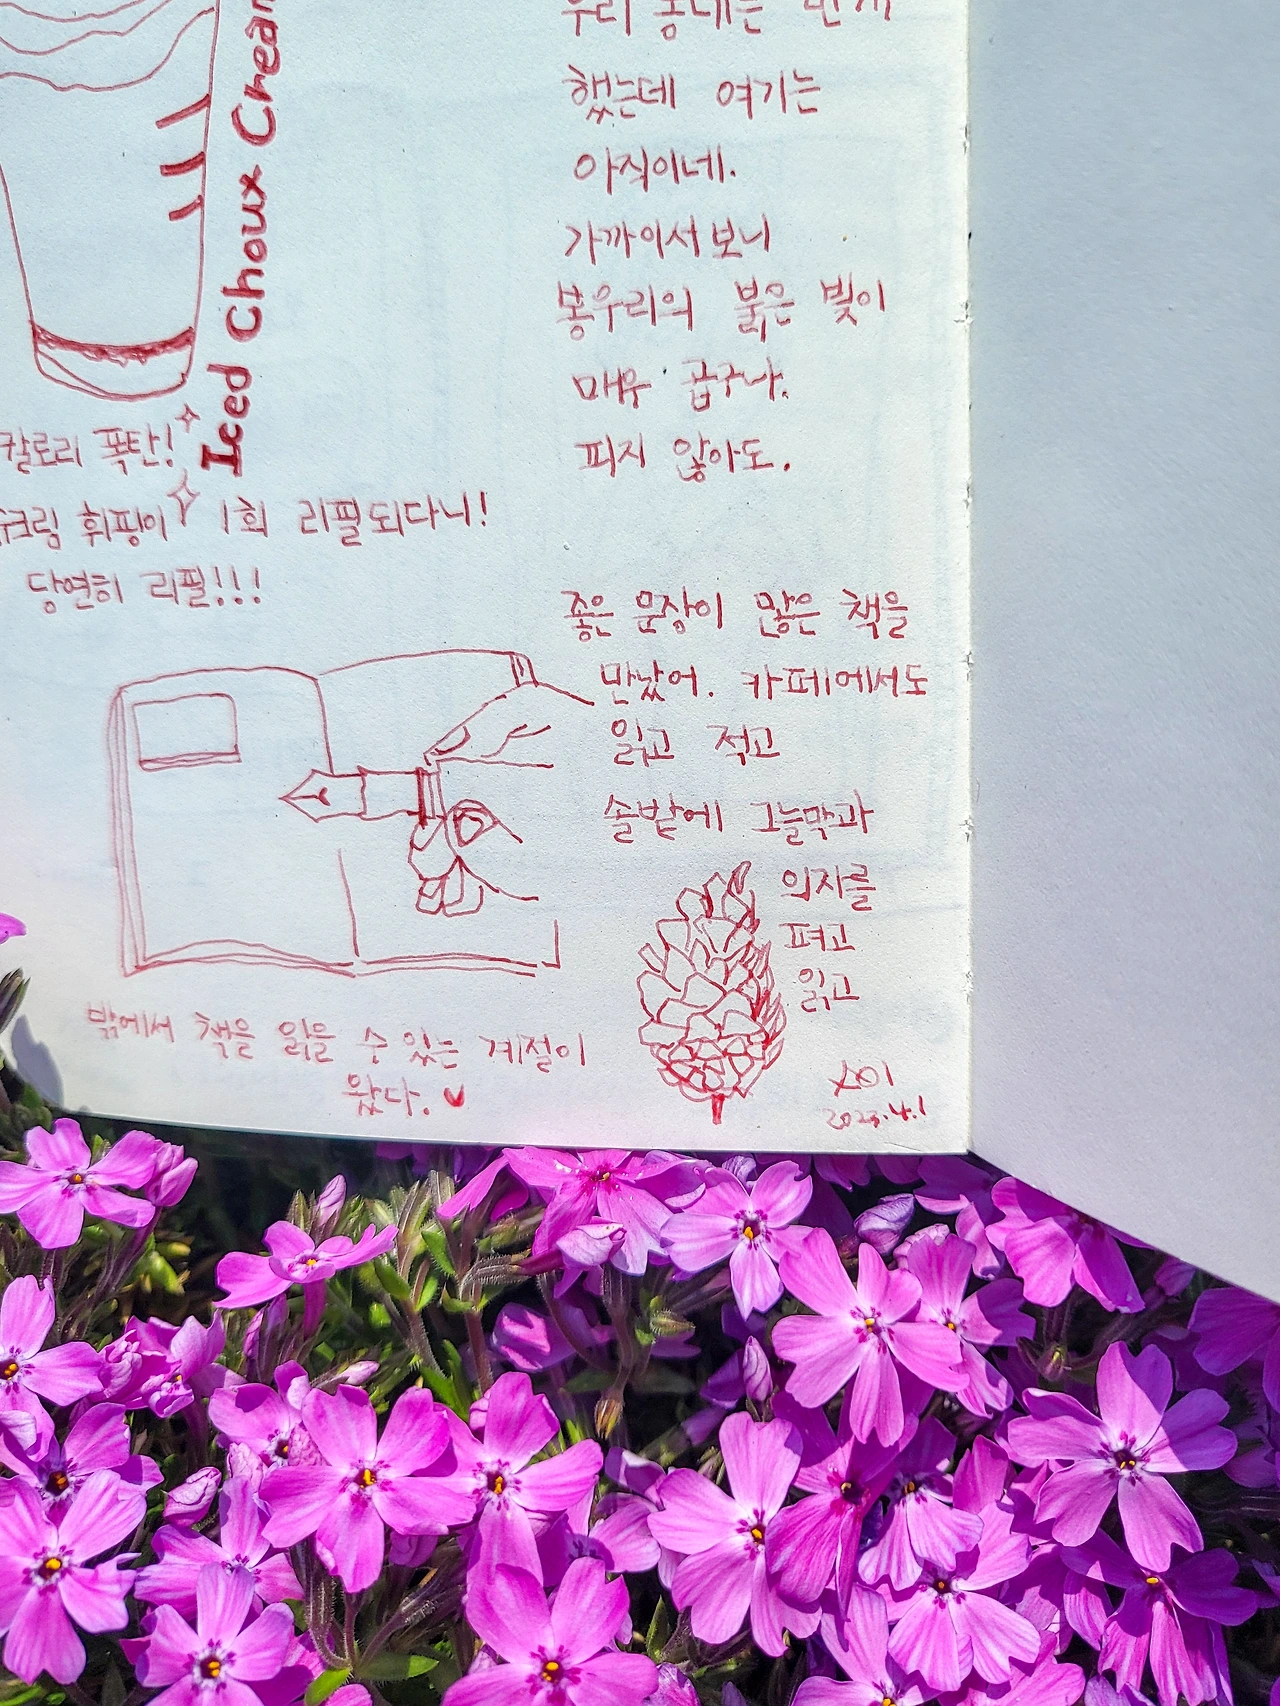 Iced Choux Cream
칼로리 폭탄!
슈크림 휘핑이 1회 리필되다니!
당연히 리필!!!
밖에서 책을 읽을 수 있는 계절이
왔다.
우리 동네는
했는데 여기는
아직이네.
가까이서 보니
봉우리의 붉은 빛이
매우 곱구나.
피지 않아도.
좋은 문장이 많은 책을
만났어. 카페에서도
읽고 적고
솔밭에 그늘막과
의자를
펴고
읽고
2023.4.1